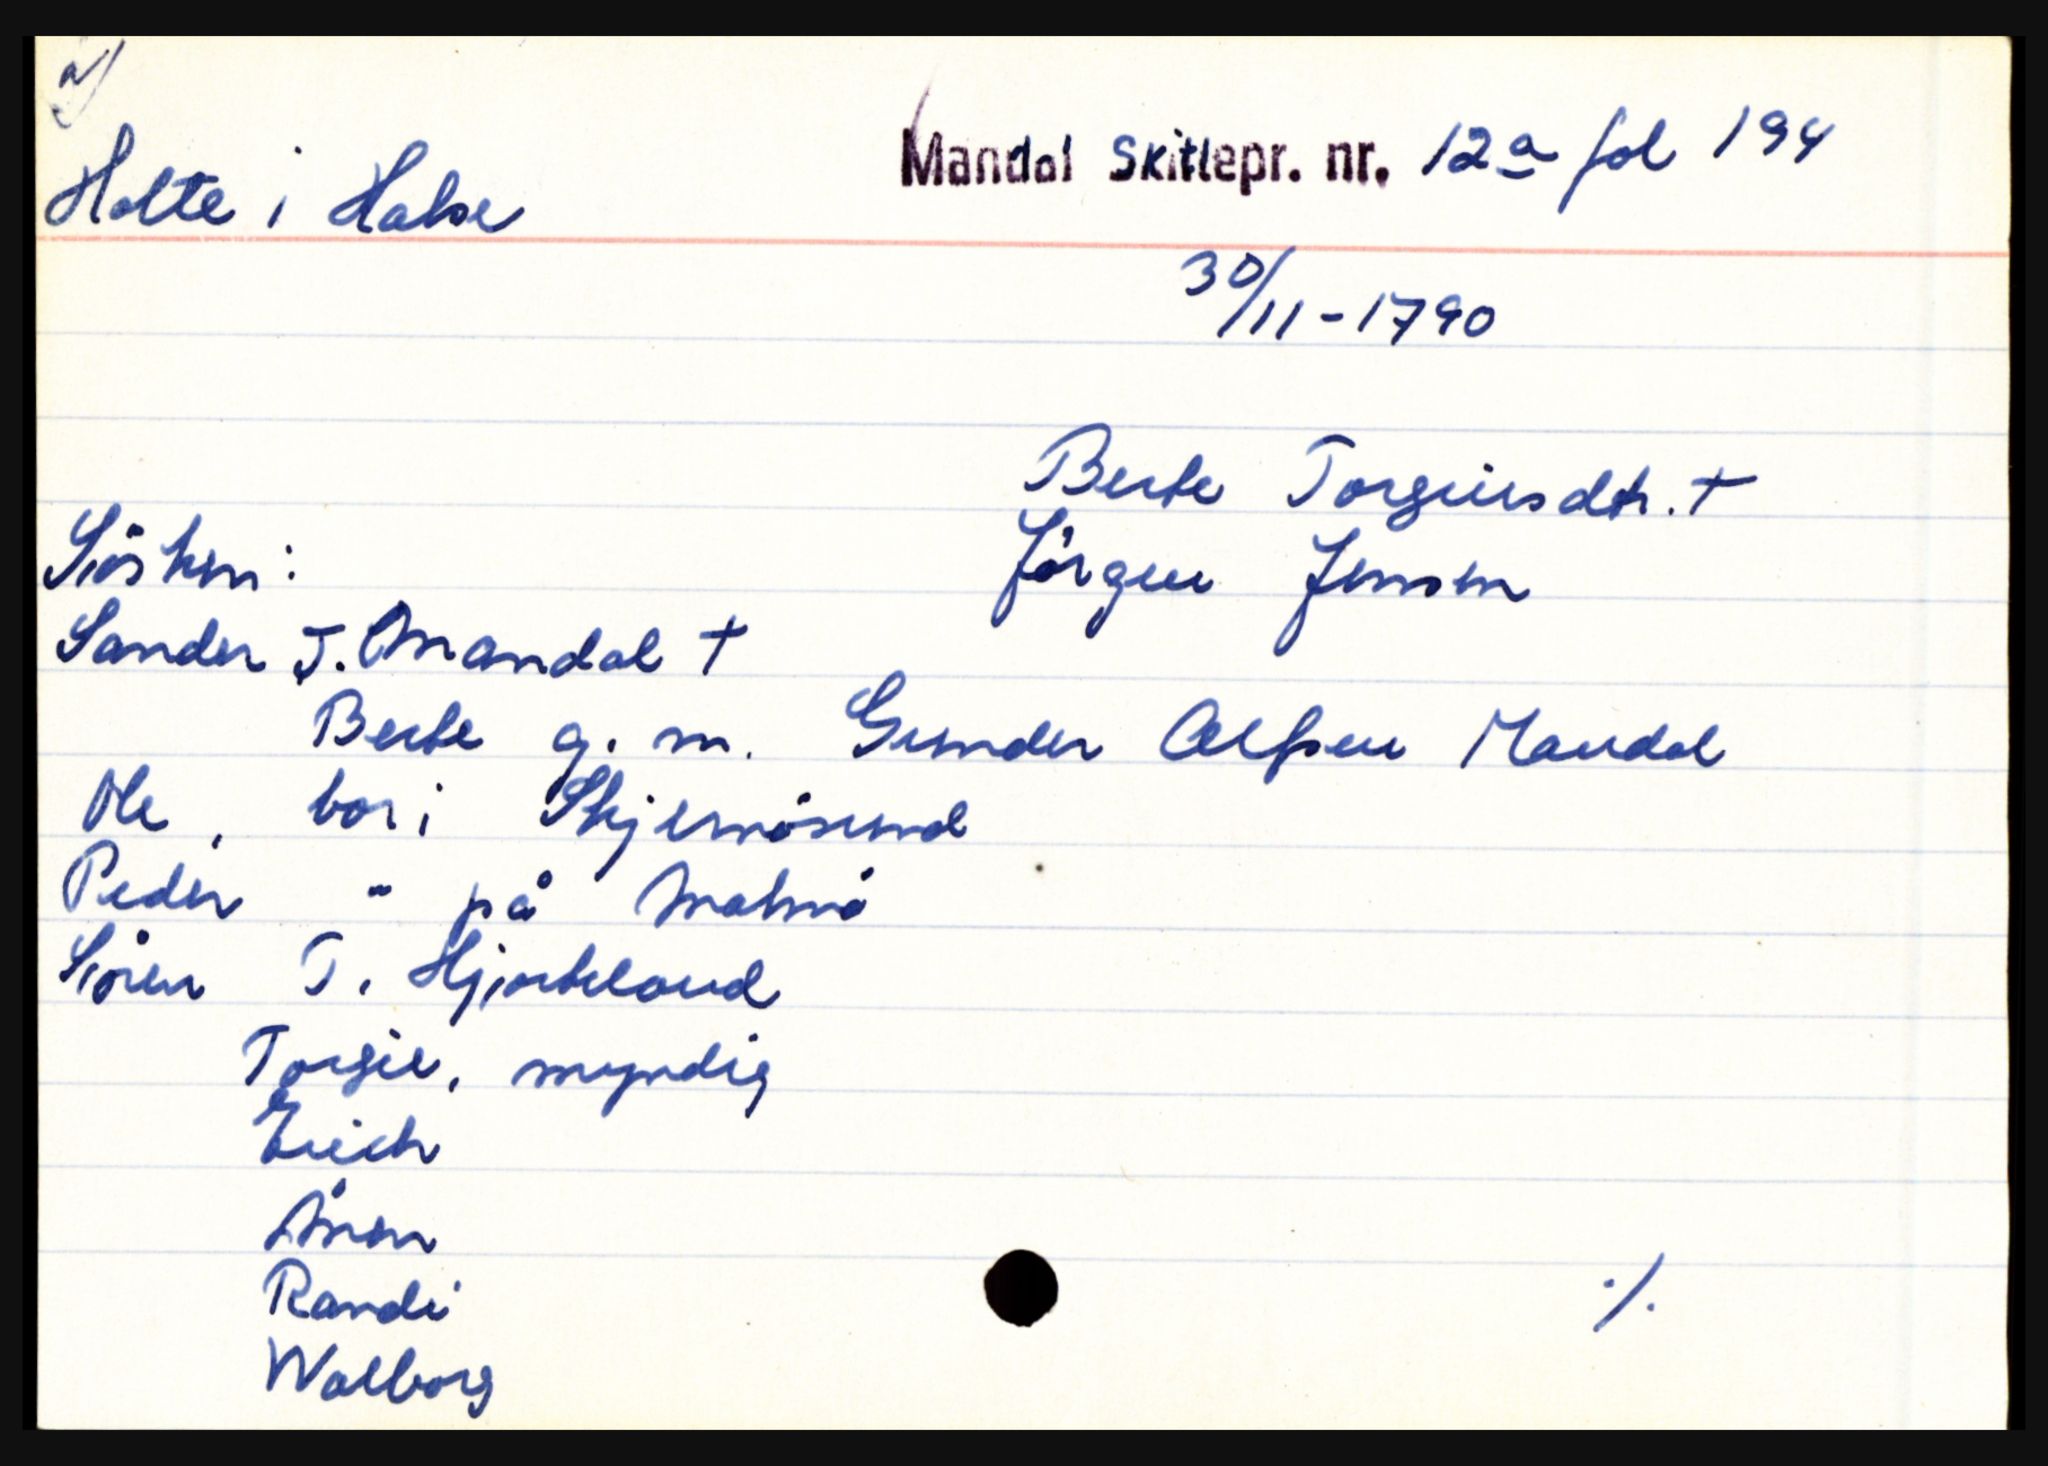 a)
Holte i Halse
Mandal Skiftepr. nr. 12a fol 194
30/11-1790
Berte Torgiersdtr. +
Jörgen Jensen
Siösken:
Sander T. Mandal +
Berte g. m. Gunder Alfsen Mandal
Ole, bor i Skjernösund
Peder " på
Sören T. Hjorteland
Torgie, myndig
Erich
Rande
Walborg
./.